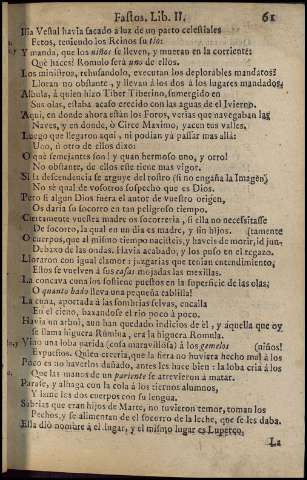 Fastos. Lib. II. 61
Ilia Vestal havia sacado a luz de un parto celestiales
Fetos, teniendo los Reinos su tio:
Y manda, que los niños se lleven, y mueran en la corriente:
Què haces? Romulo serà uno de ellos.
Los ministros, rehusandolo, executan los deplorables mandatos:
Lloran no obstante, y llevan à los dos à los lugares mandados.
Albula, à quien hizo Tiber Tiberino, sumergido en
Sus olas, estaba acaso crecido con las aguas de el Ivierno.
Aqui, en donde ahora estàn los Foros, verias que navegaban las
Naves, y en donde, ò Circo Maximo, yacen tus valles,
Luego que llegaron aqui, ni podian yà passar mas allà:
Uno, ù otro de ellos dixo:
O què semejantes son! y quan hermoso uno, y otro!
No obstante, de ellos este tiene mas vigor.
Si la descendencia se arguye del rostro (si no engaña la Imagen)
No sè qual de vosotros sospecho que es Dios.
Pero si algun Dios fuera el autor de vuestro origen,
Os daria su socorro en tan peligroso tiempo.
Ciertamente vuestra madre os socorreria, si ella no necessitasse
De socorro, la qual en un dia es madre, y sin hijos. (tamente
O cuerpos, que al mismo tiempo nacisteis, y haveis de morir, id jun-
Debaxo de las ondas. Havia acabado, y los puso en el regazo.
Lloraron con igual clamor: juzgaràs que tenian entendimiento;
Estos se vuelven à sus casas mojadas las mexillas.
La concava cuna los sostiene puestos en la superficie de las olas,
O quanto hado lleva una pequeña tablilla!
La cuna, aportada à las sombrias selvas, encalla
En el cieno, baxandose el rio poco à poco.
Havia un arbol, aun han quedado indicios de èl, y aquella que oy
se llama higuera Rùmina, era la higuera Romula.
Vino una loba parida (cosa maravillosa) à los gemelos (niños!
Expuestos. Quien creeria, que la fiera no huviera hecho mal à los
Poco es no haverlos dañado, antes les hace bien: la loba cria à los
Que las manos de un pariente se atrevieron à matar.
Paròse, y alhaga con la cola à los tiernos alumnos,
Y lame los dos cuerpos con su lengua.
Sabrias que eran hijos de Marte, no tuvieron temor, toman los
Pechos, y se alimentan de el socorro de la leche, que se les daba.
Ella diò nombre à el lugar, y el mismo lugar es Luperco,
La